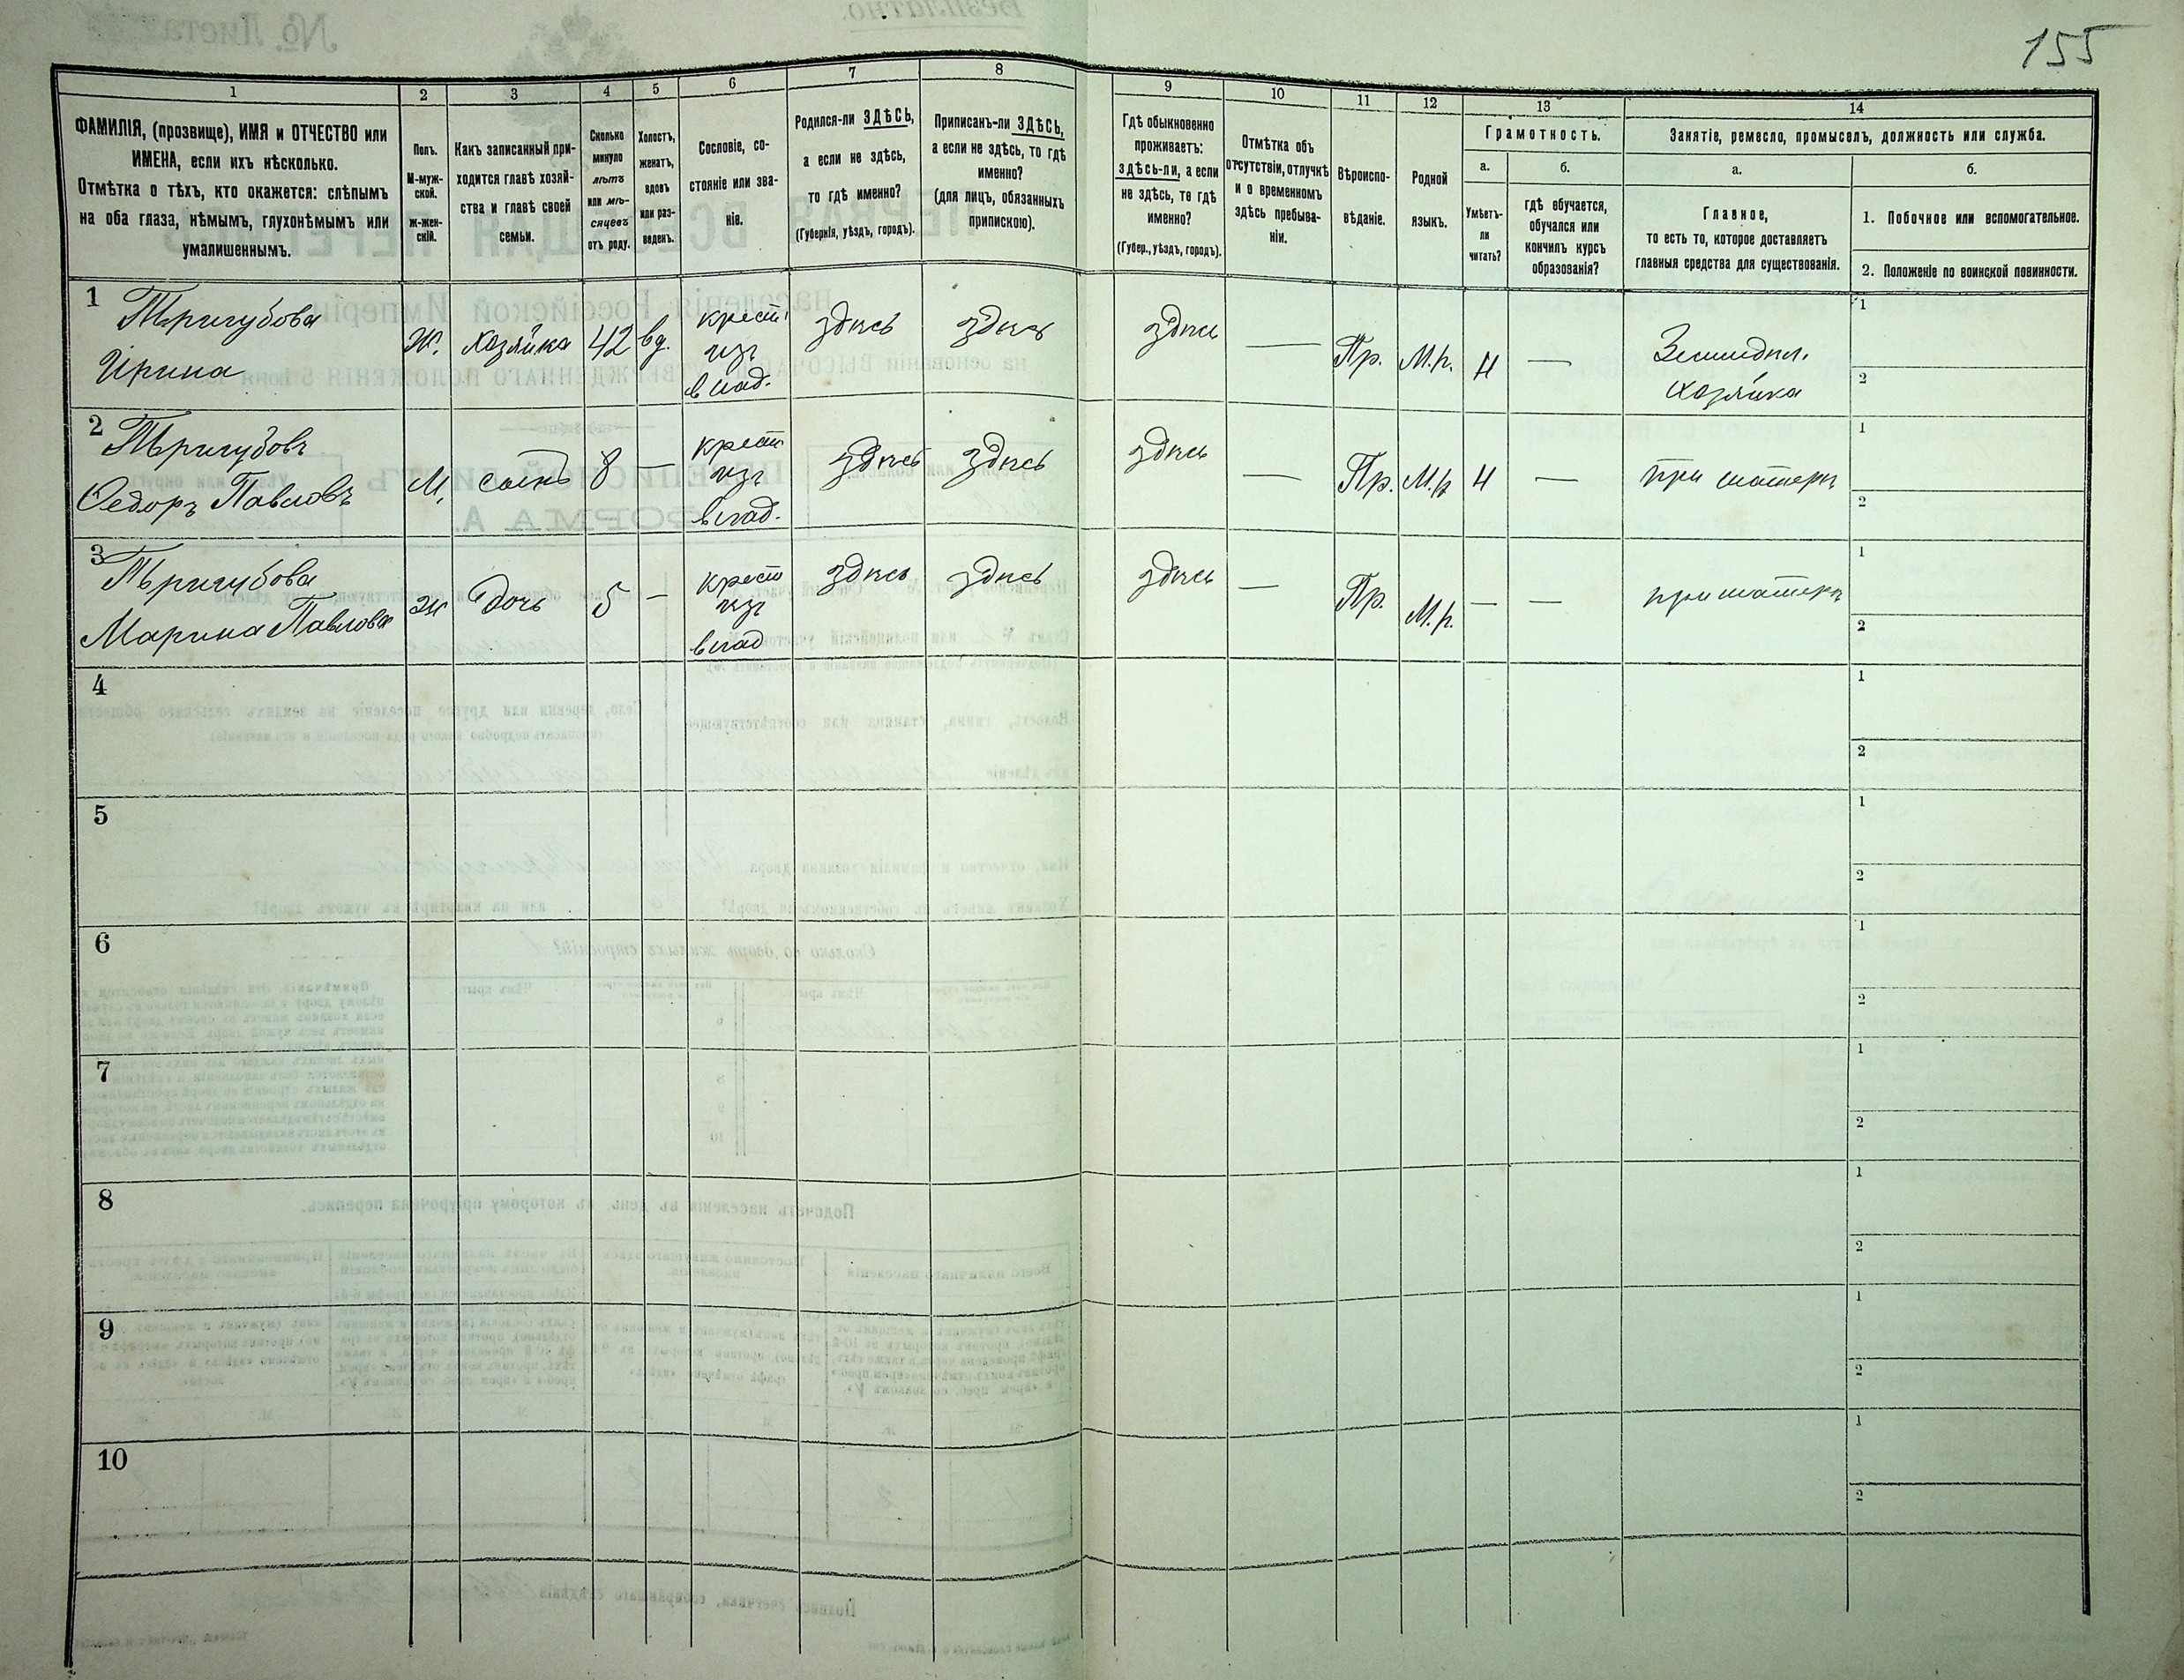 155
1
2
3
4
5
6
7
8
9
10
11
12
13
14
ФАМИЛІЯ, (прозвище), ИМЯ и ОТЧЕСТВО или
ИМЕНА, если ихъ нѣсколько.
Отмѣтка о тѣхъ, кто окажется: слѣпымъ
на оба глаза, нѣмымъ, глухонѣмымъ или
умалишеннымъ.
Полъ.
М-муж-
ской.
ж-жен-
скій.
Какъ записанный при-
ходится главѣ хозяй-
ства и главѣ своей
семьи.
Сколько
минуло
лѣтъ
или мѣ-
сяцевъ
отъ роду.
Холостъ,
женатъ,
вдовъ
или раз-
веденъ.
Сословіе, со-
стояніе или зва-
ніе.
Родился-ли ЗДѢСЬ,
а если не здѣсь,
то гдѣ именно?
(Губернія, уѣздъ, городъ).
Приписанъ-ли ЗДѢСЬ,
а если не здѣсь, то гдѣ
именно?
(для лицъ, обязанныхъ
припискою).
Гдѣ обыкновенно
проживаетъ:
здѣсь-ли, а если
не здѣсь, то гдѣ
именно?
(Губер., уѣздъ, городъ).
Отмѣтка объ
отсутствіи, отлучкѣ
и о временномъ
здѣсь пребыва-
ніи.
Вѣроиспо-
вѣданіе.
Родной
языкъ.
Грамотность.
а.
б.
Умѣетъ-
ли
читать?
гдѣ обучается,
обучался или
кончилъ курсъ
образованія?
Занятіе, ремесло, промыселъ, должность или служба.
а.
б.
Главное,
то есть то, которое доставляетъ
главныя средства для существованія.
1. Побочное или вспомогательное.
2. Положеніе по воинской повинности.
1
Тригубова
Ирина
Ж.
хозяйка
42
вд.
крест.
изъ
влад.
здѣсь
здѣсь
здѣсь
—
Пр.
М.р.
Н
—
Земледѣл.
хозяйка
1
2
2
Тригубовъ
Ѳедоръ Павловъ
М.
сынъ
8
—
крест
изъ
влад.
здѣсь
здѣсь
здѣсь
—
Пр.
М.р
Н
—
при матери
1
2
3
Тригубова
Марина Павлова
Ж
дочь
5
—
крест
изъ
влад
здѣсь
здѣсь
здѣсь
—
Пр.
М.р.
—
—
при матери
1
2
4
1
2
5
1
2
6
1
2
7
1
2
8
1
2
9
1
2
10
1
2